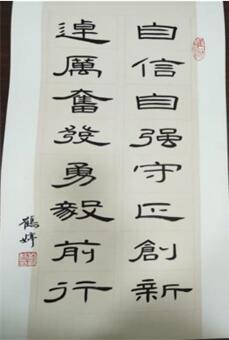 自信自强守正創新
踔厲奮發勇毅前行
鶴婷